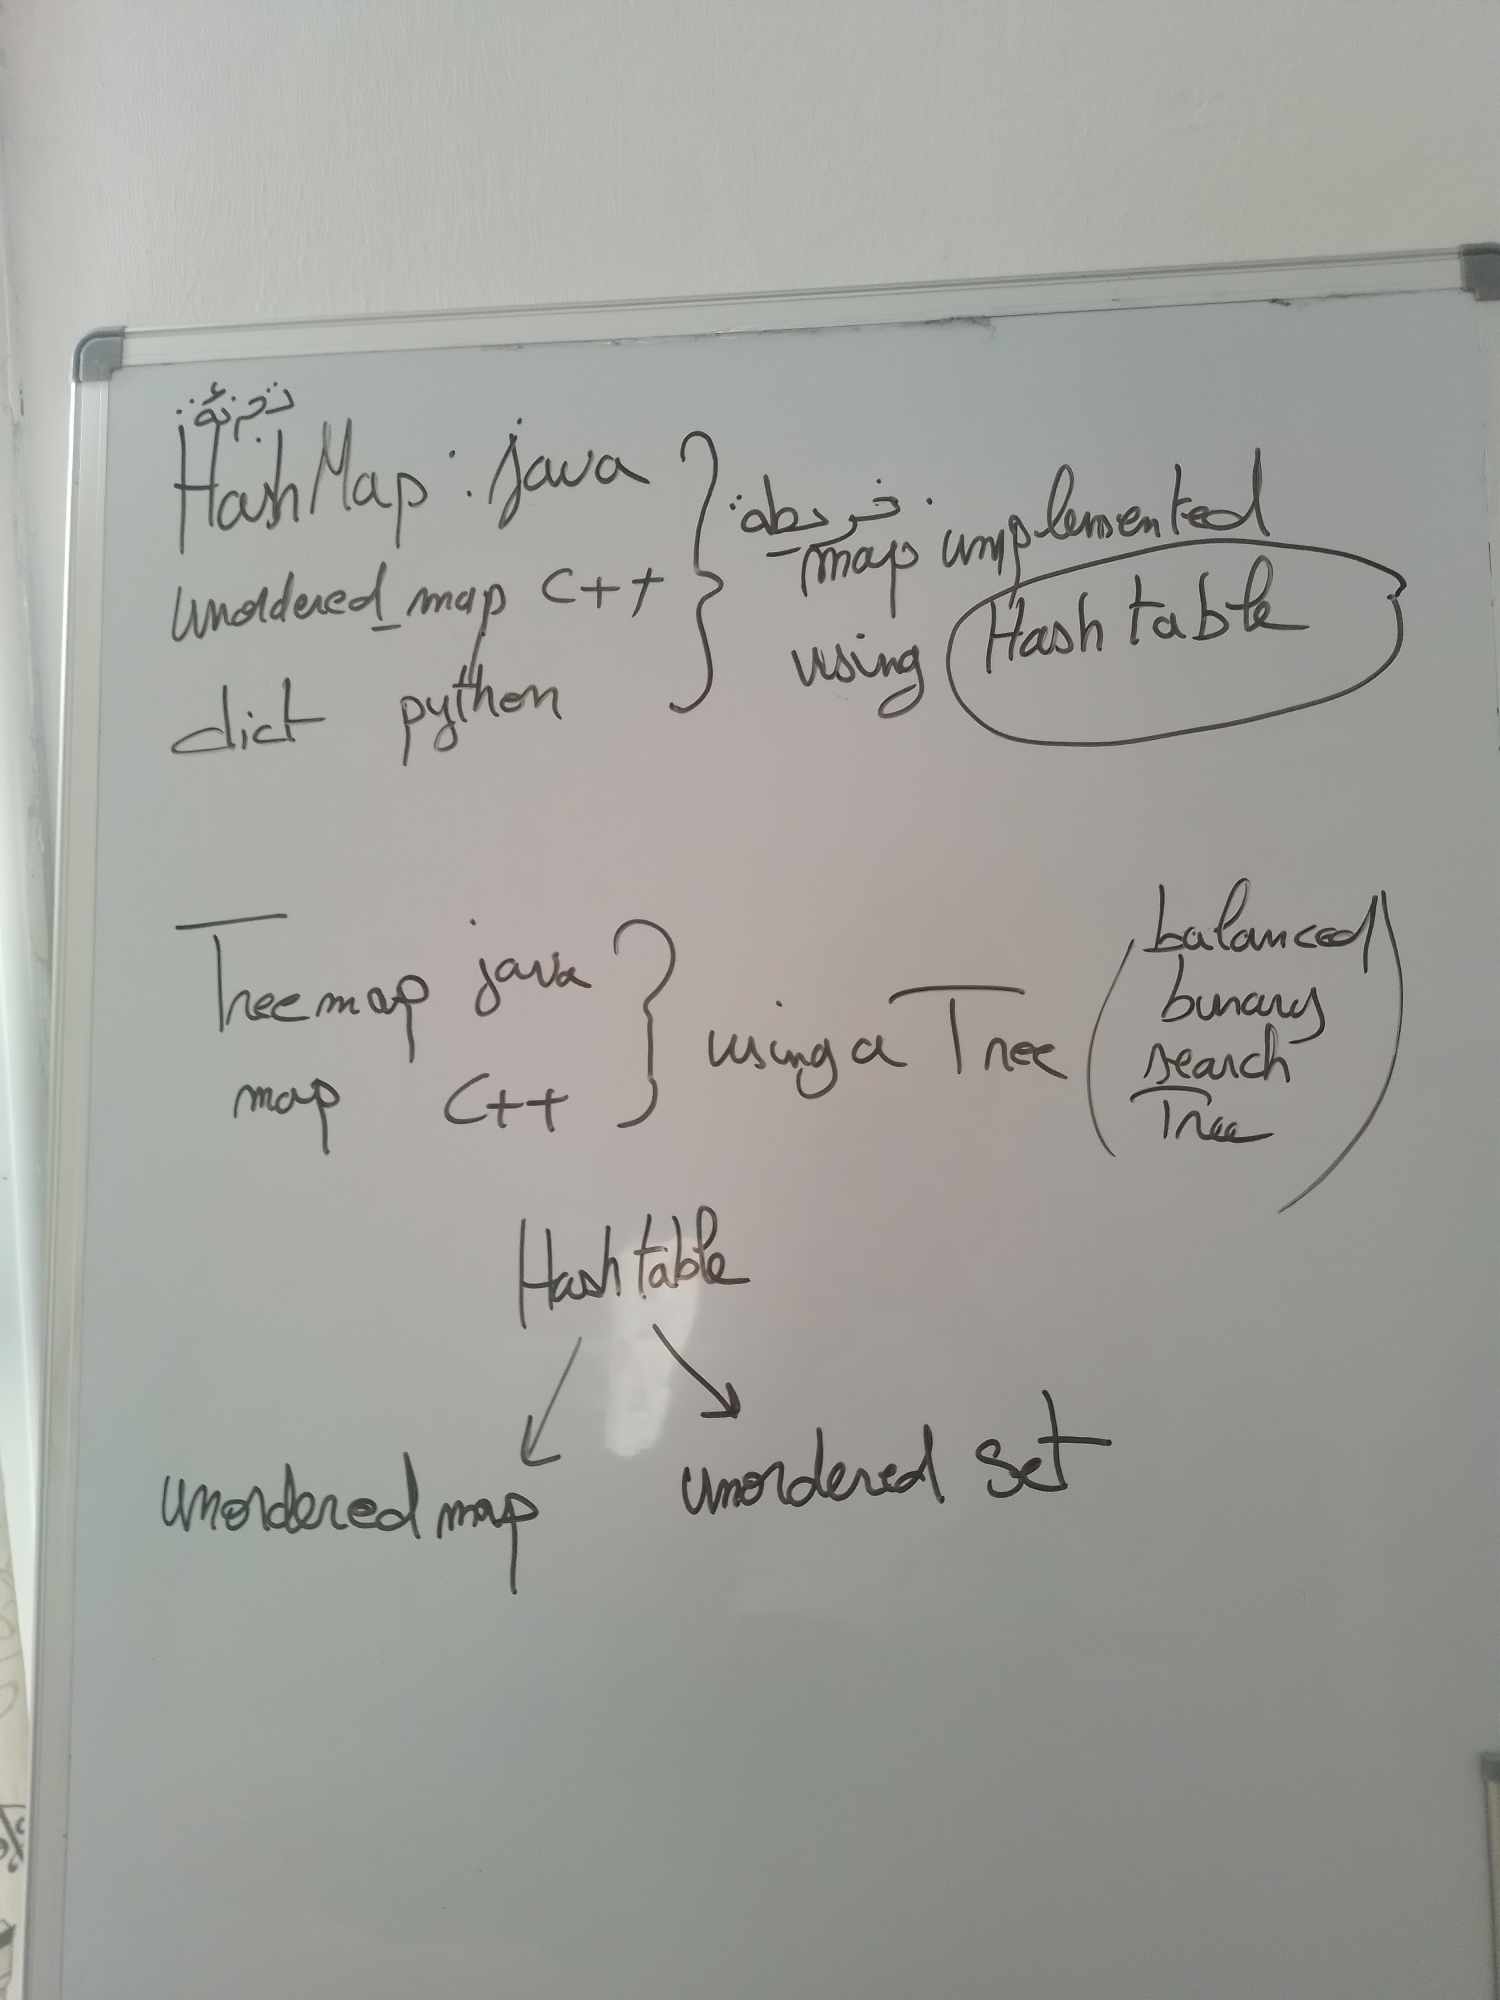 تجزئة
HashMap : java
unordered_map C++
dict python
خريطة
map implemented
using Hash table
Treemap java
map C++
using a Tree
balanced
binary
search
Tree
Hash table
unordered map
unordered set